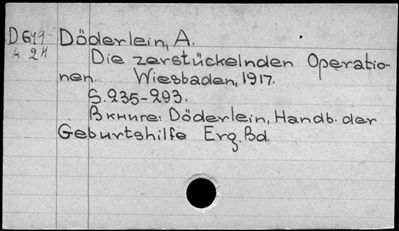 D 649 Döderlein, A.
4 24 Die zerstückelnden Operatio-
nen. Wiesbaden, 1917.
S. 235-293.
В книге: Döderlein, Handb. der
Geburtshilfe Erg. Bd.